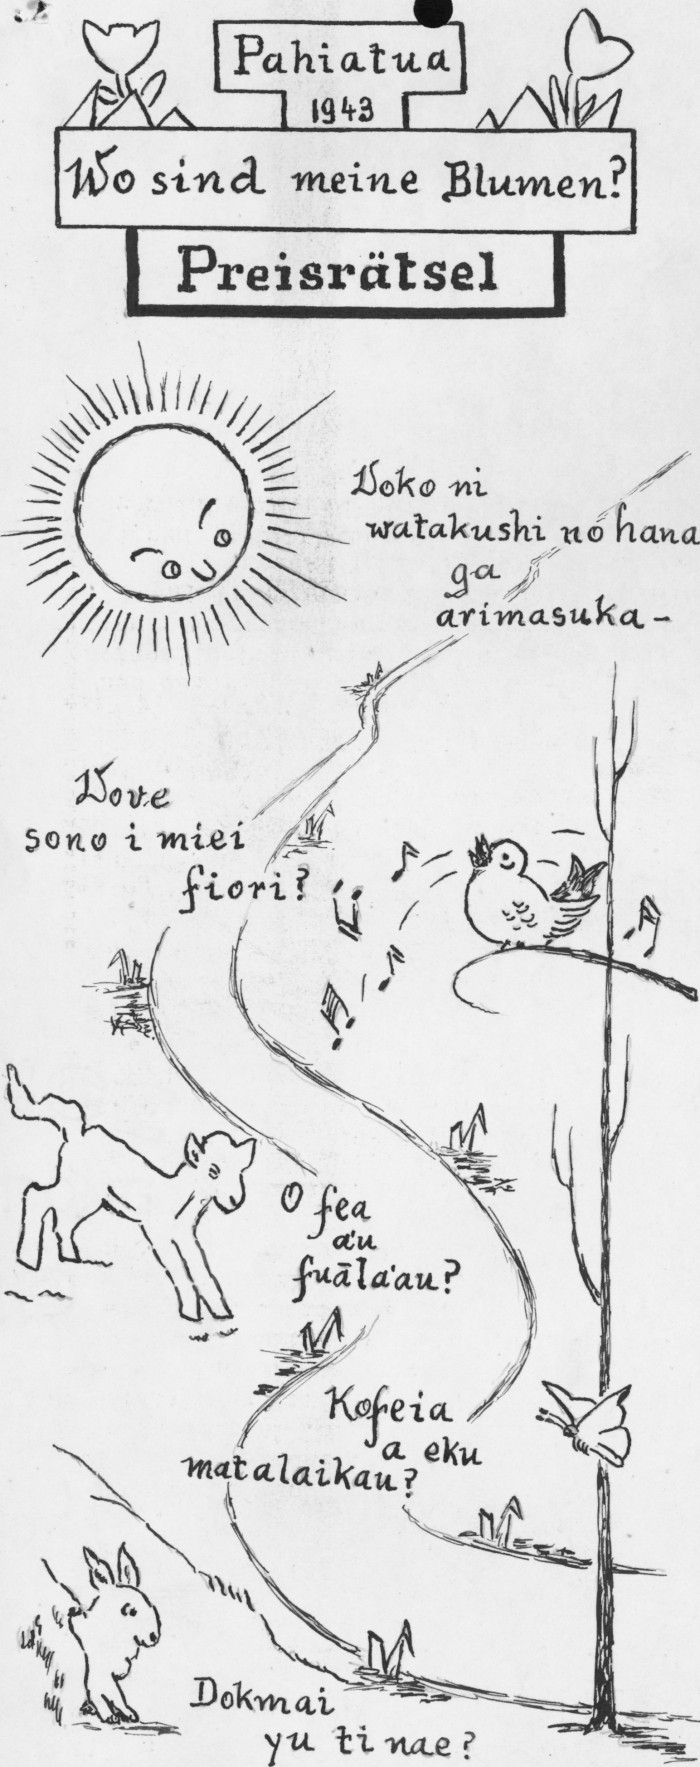 Pahiatua
1943
Wo sind meine Blumen?
Preisrätsel
Doko ni
watakushi no hana
ga
arimasuka-
Dove
sono i miei
fiori?
O fea
a'u
fuāla'au?
Kofeia
a eku
matalaikau?
Dokmai
yu ti nae?